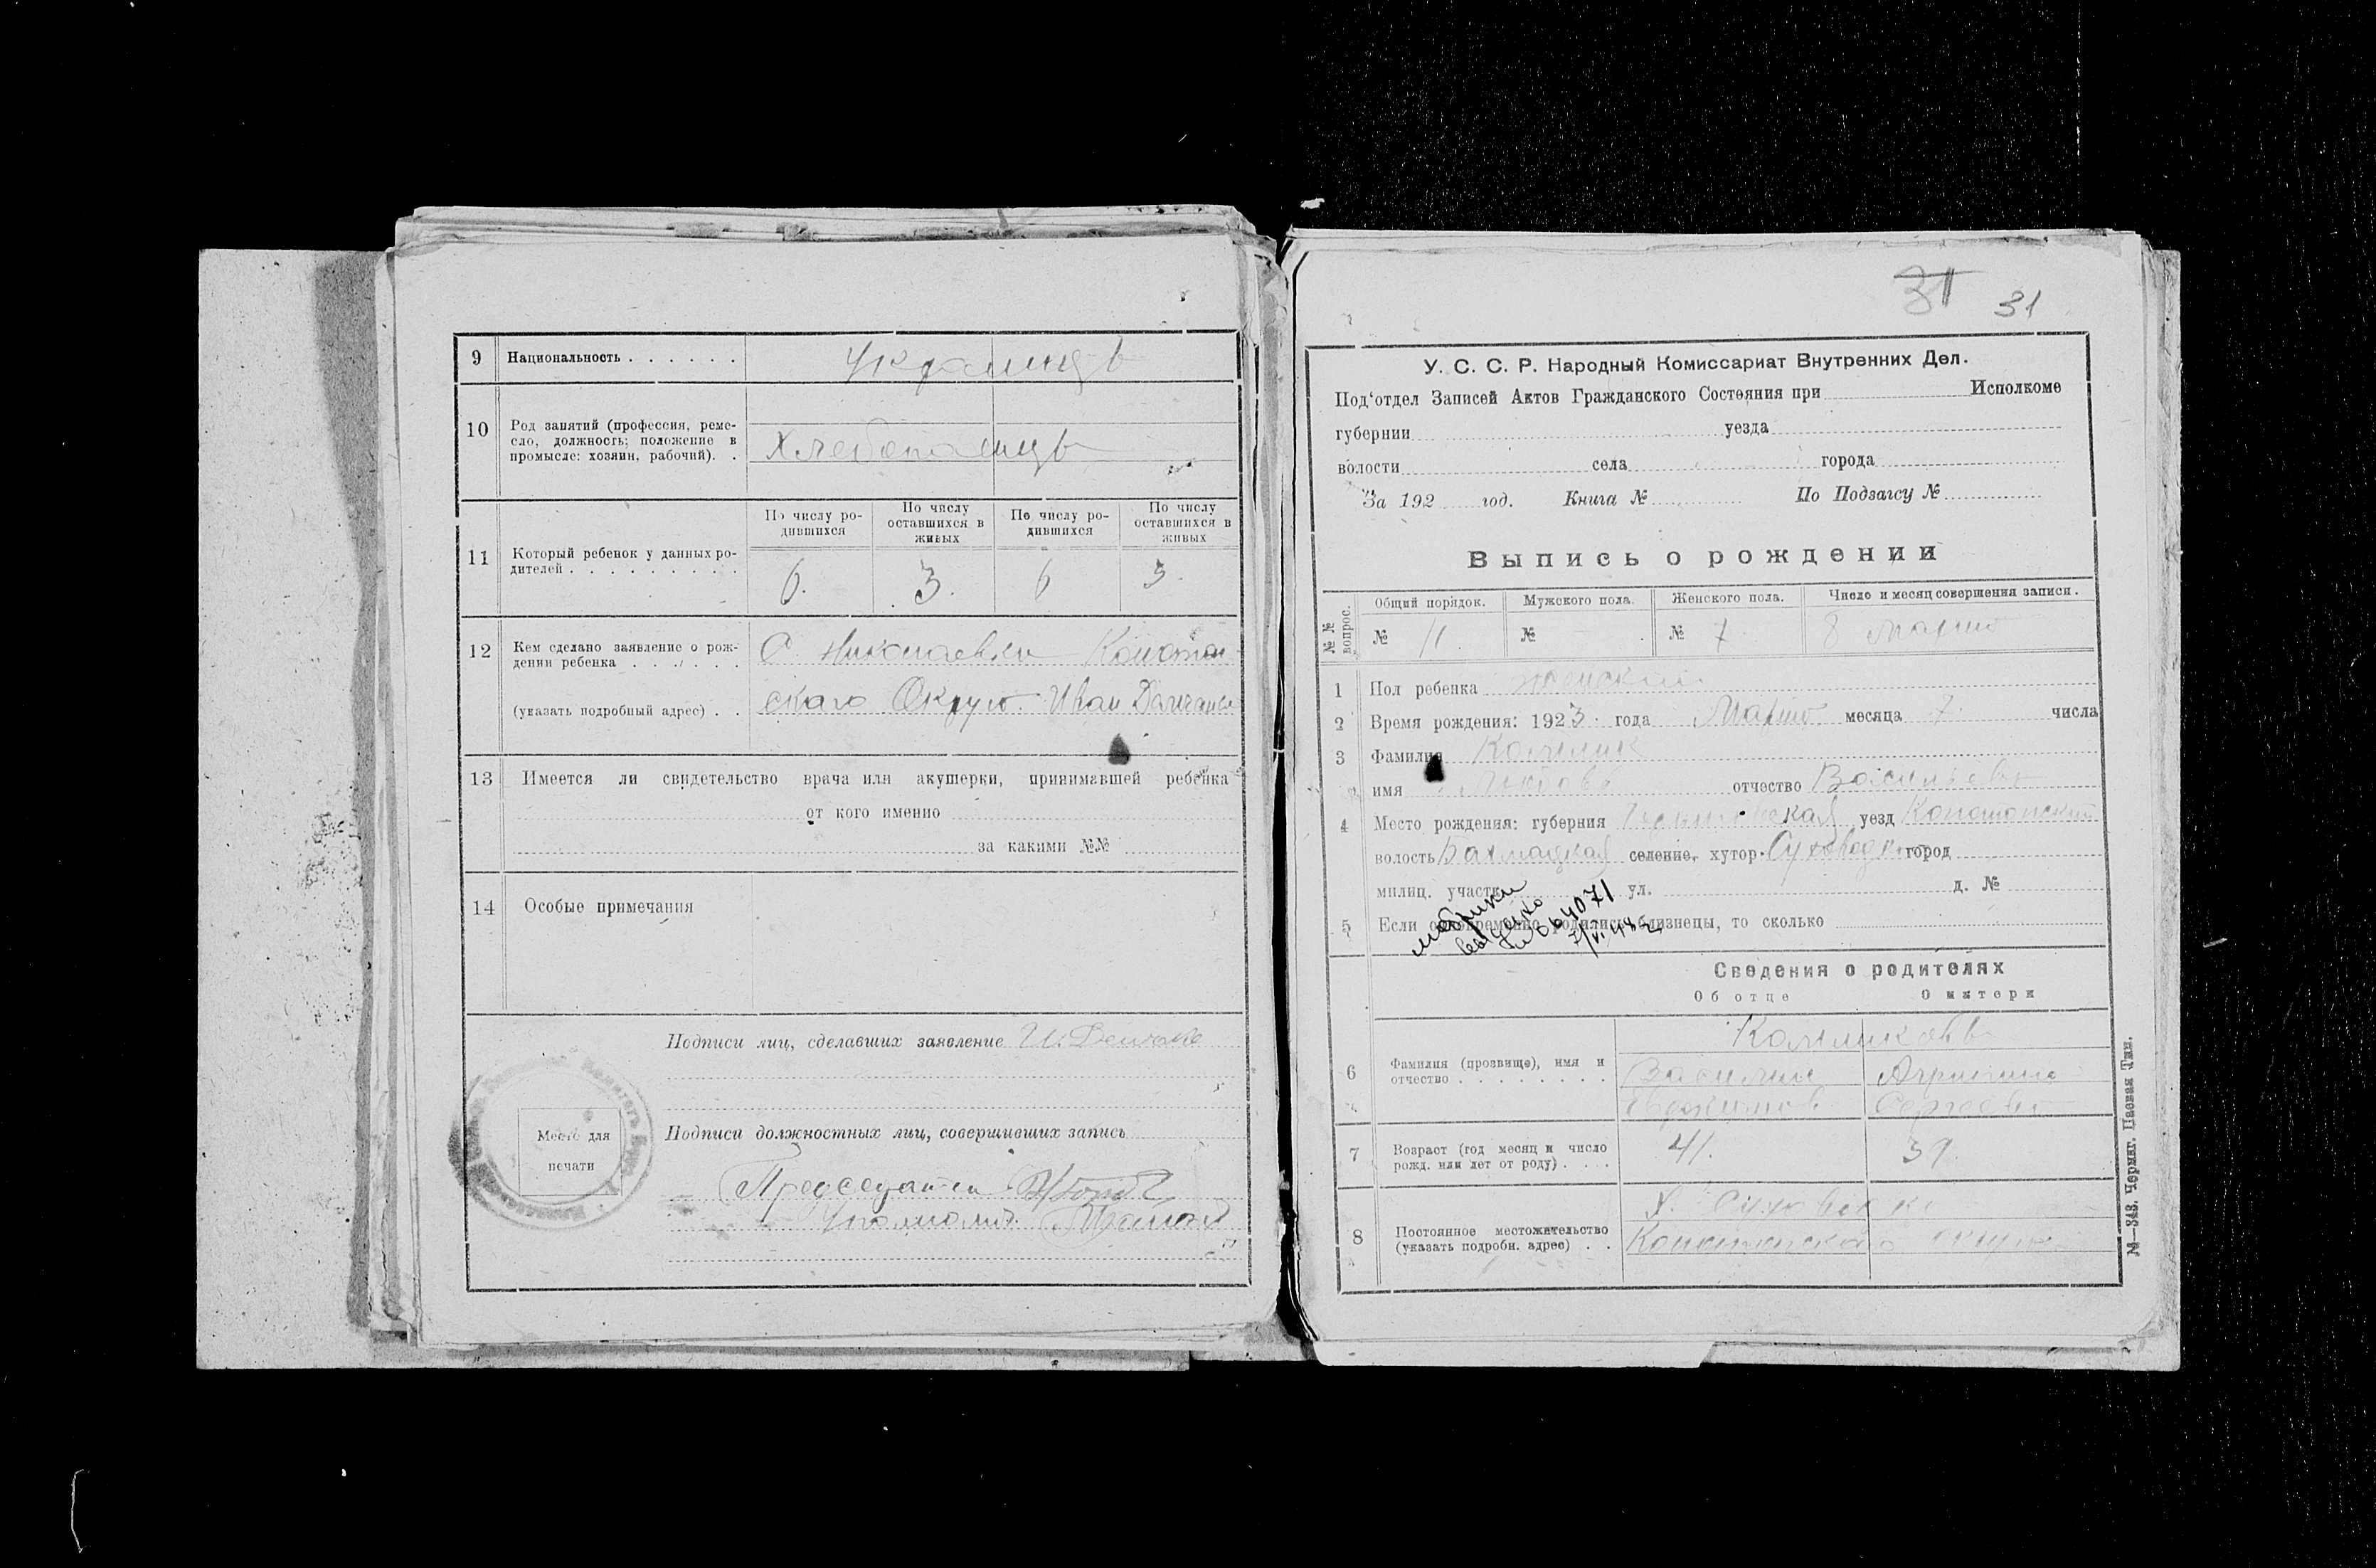 9 Национальность . . . . . . Украинцъ
10 Род занятий (профессия, реме-
сло, должность; положение в
промысле: хозяин, рабочий). . Хлебопашцъ
11 Который ребенок у данных ро-
дителей . . . . . . . . .
По числу ро-
дившихся
По числу
оставшихся в
живых
По числу ро-
дившихся
По числу
оставшихся в
живых
6. 3. 6 3.
12 Кем сделано заявление о рож-
дении ребенка . . . . . . С. Николаевки Конотоп
(указать подробный адрес) . . скаго Округа Иван
13 Имеется ли свидетельство врача или акушерки, принимавшей ребенка
от кого именно
за какими №№
14 Особые примечания
Подписи лиц, сделавших заявление И.
Подписи должностных лиц, совершивших запись
Место для
печати
Председатель
31 31
У. С. С. Р. Народный Комиссариат Внутренних Дел.
Под‘отдел Записей Актов Гражданского Состояния при Исполкоме
губернии уезда
волости села города
За 192 год. Книга № По Подзагсу №
Выпись о рождении
№№ вопрос.
Общий порядок. Мужского пола. Женского пола. Число и месяц совершения записи.
№ 11. № № 7. 8 Марта
1 Пол ребенка женский
2 Время рождения: 1923. года Марта месяца 7. числа
3 Фамилия
имя Любовь отчество Васильевъ
4 Место рождения: губерния Черниговская уезд Конотопский
волость Бахмацкая селение, хутор. город
милиц. участк ул. д. №
5 Если одновременно родились близнецы, то сколько
метрики
выдано
№ 064071
Сведения о родителях
Об отце О матери
6 Фамилия (прозвище), имя и
отчество . . . . . . . .
Василий Агрипина
Сергеевъ
7 Возраст (год месяц и число
рожд. или лет от роду) . . .
41. 39.
8 Постоянное местожительство
(указать подробн. адрес) . .
Х.
Конотопскаго
№—343. Черниг. Паевая Тип.